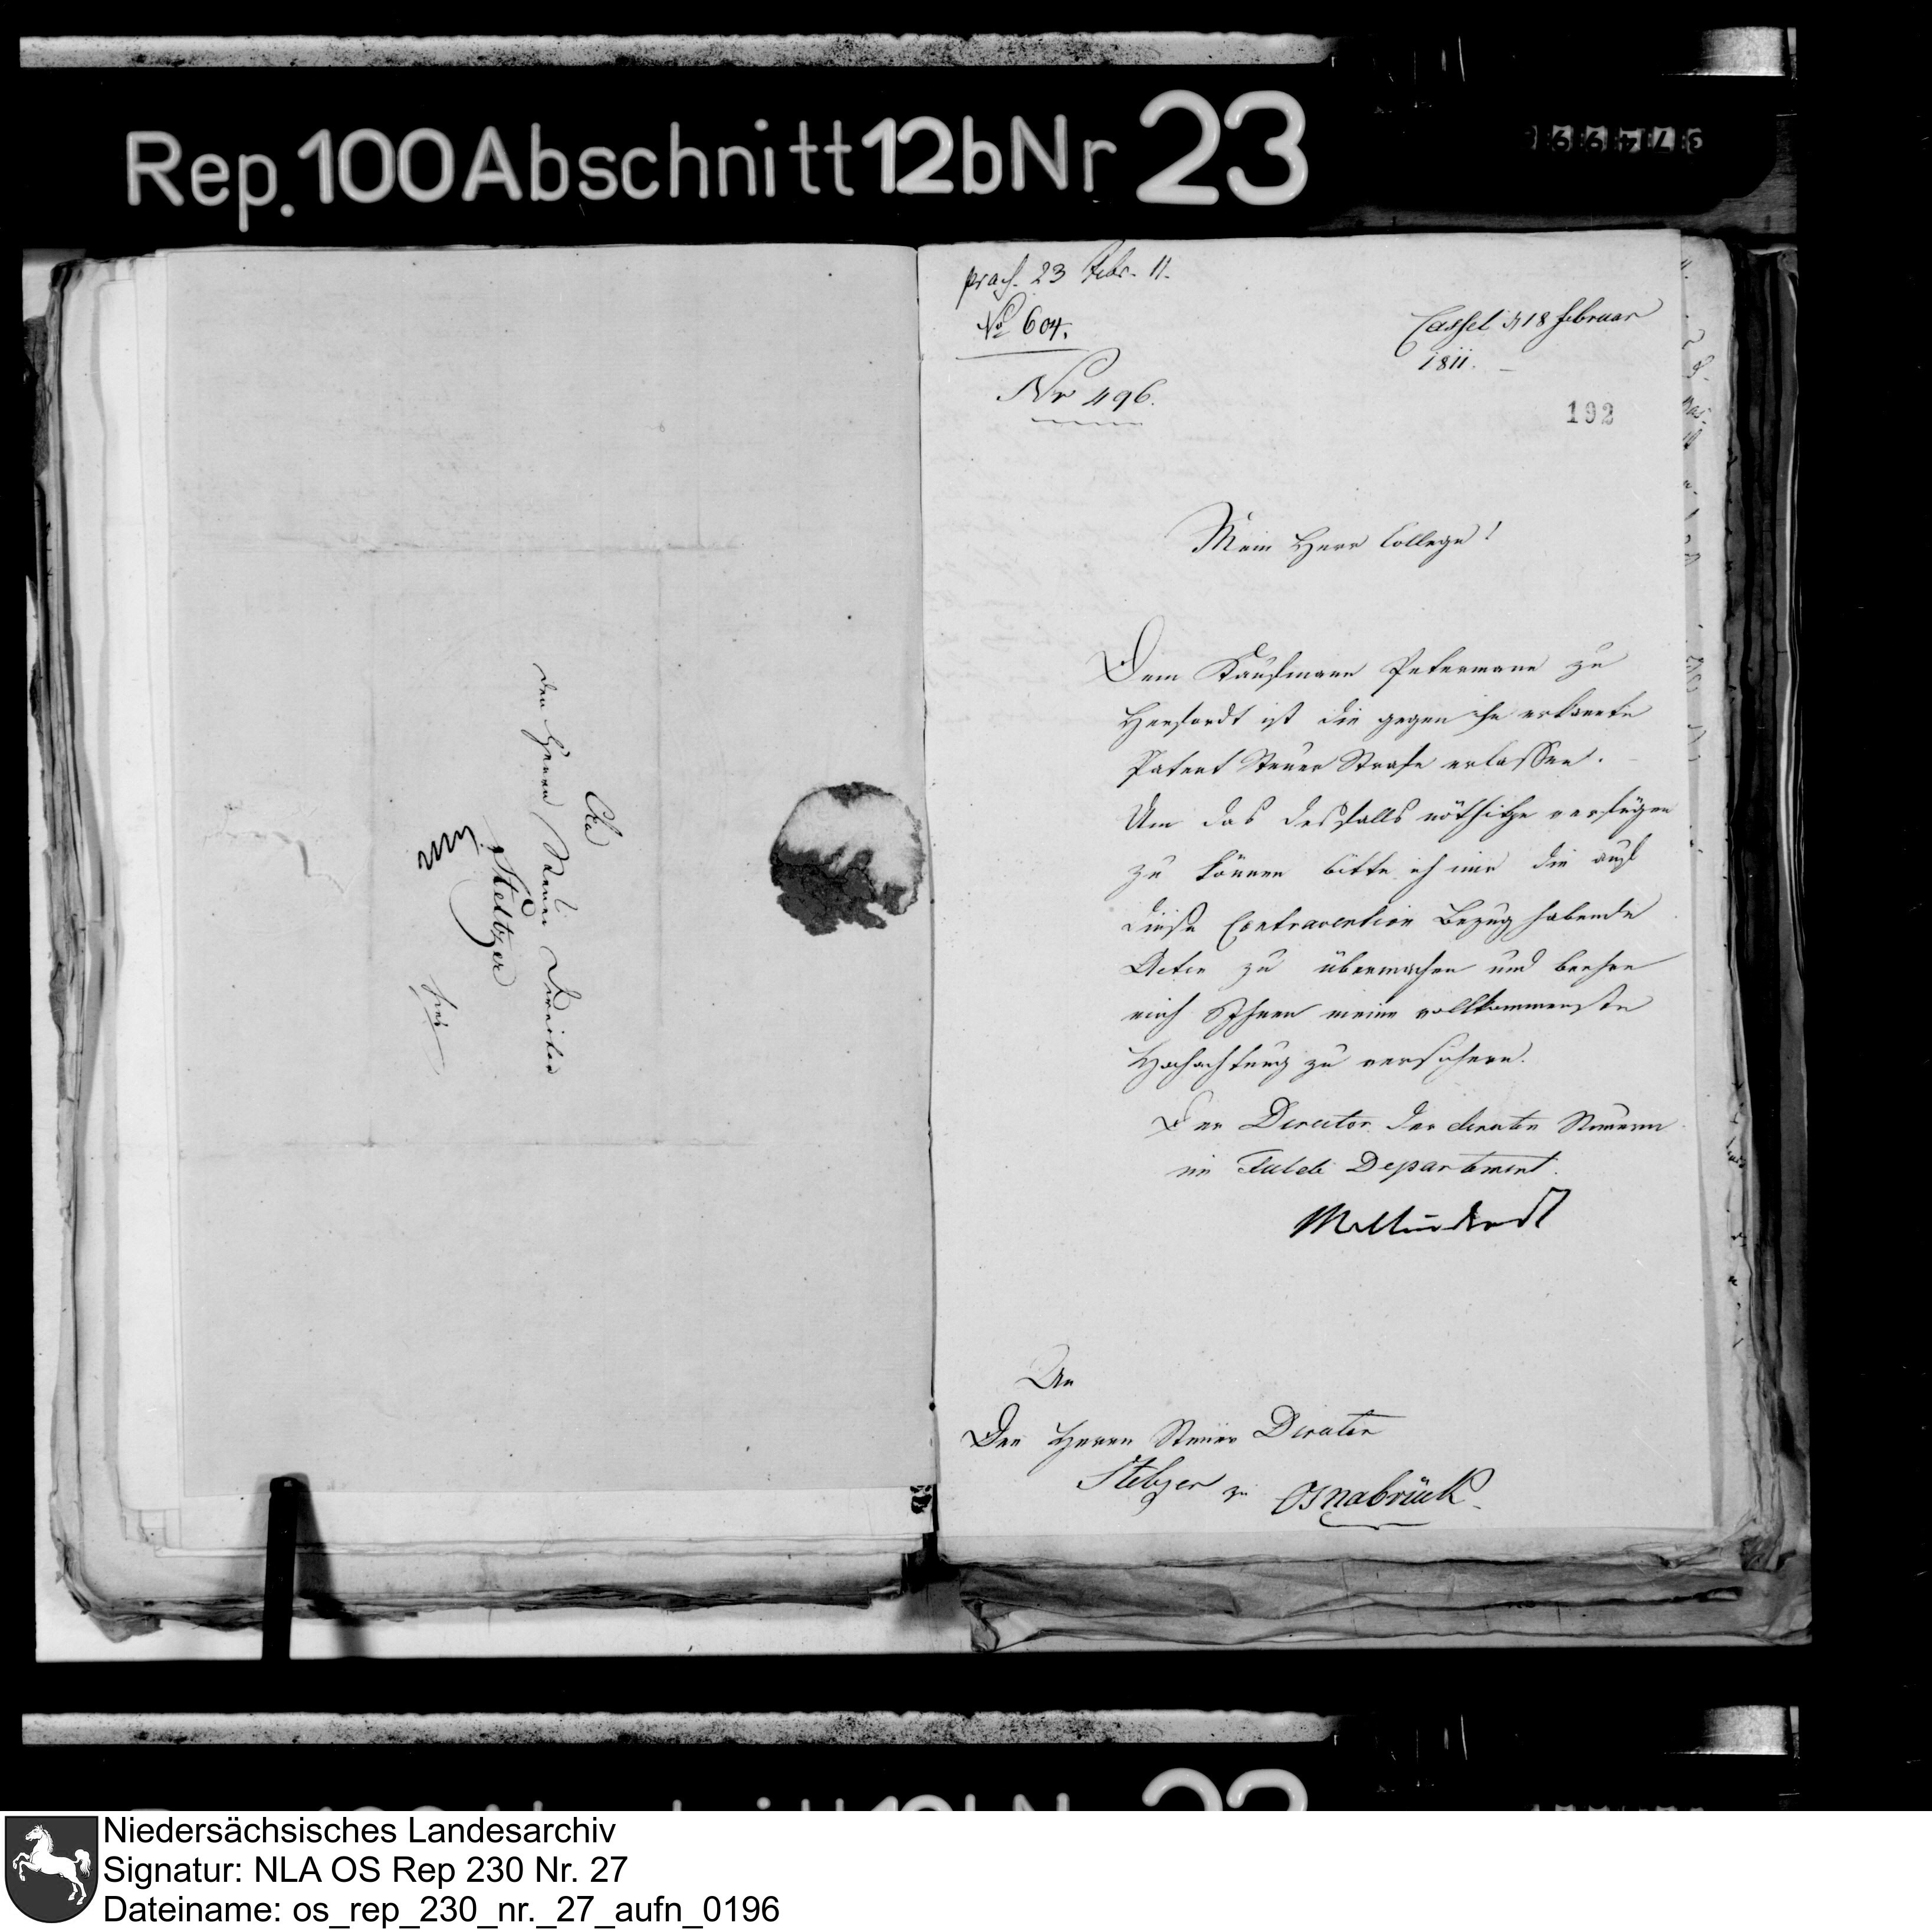 Rep. 100 Abschnitt 12b Nr 23
An
den Herrn Steuer Director
Steltzer
frei
praes. 23 Febr. 11.
No 604.
Nr 496.
Cassel d 18 Februar
1811.
192
Mein Herr College!
Dem Kaufmann Petermann zu
Herfordt ist die gegen ihn erkannte
Patent Steuer Strafe erlassen.
Um das desfalls nöthige verfügen
zu können bitte ich mir die auf
diese Contravention Bezug habende
Acten zu übermachen und beehre
mich Ihnen meine vollkommenste
Hochachtung zu versichern.
Der Director der directen Steuern
im Fulda Departement.
An
Den Herrn Steuer Director
Steltzer zu Osnabrück
Niedersächsisches Landesarchiv
Signatur: NLA OS Rep 230 Nr. 27
Dateiname: os_rep_230_nr._27_aufn_0196